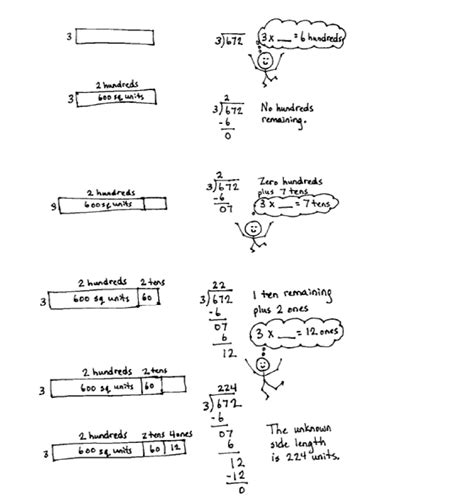 3
3)672
3 x __ = 6 hundreds
2 hundreds
3 600 sq units
2
3)672
-6
0
No hundreds
remaining.
2 hundreds
3 600 sq units
2
3)672
-6
07
Zero hundreds
plus 7 tens
3 x __ = 7 tens
2 hundreds 2 tens
3 600 sq units 60
22
3)672
-6
07
6
12
1 ten remaining
plus 2 ones
3 x __ = 12 ones
2 hundreds 2 tens
3 600 sq units 60
2 hundreds 2 tens 4 ones
3 600 sq units 60 12
224
3)672
-6
07
6
12
-12
0
The unknown
side length
is 224 units.